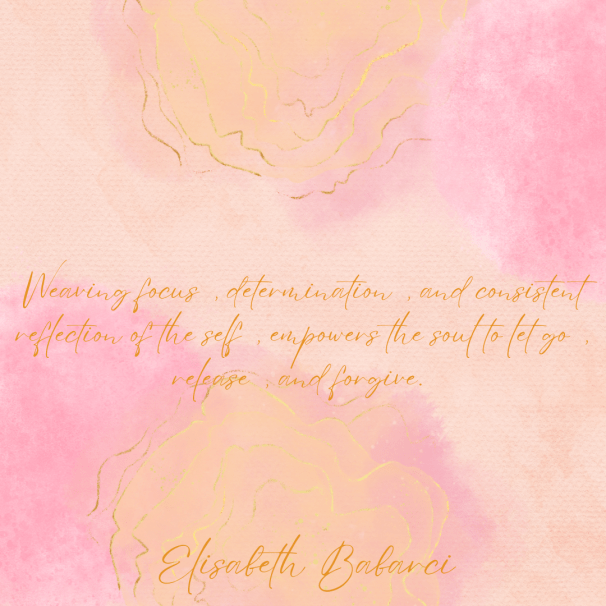 Weaving focus , determination , and consistent
reflection of the self , empowers the soul to let go ,
release , and forgive.
Elisabeth Babarci